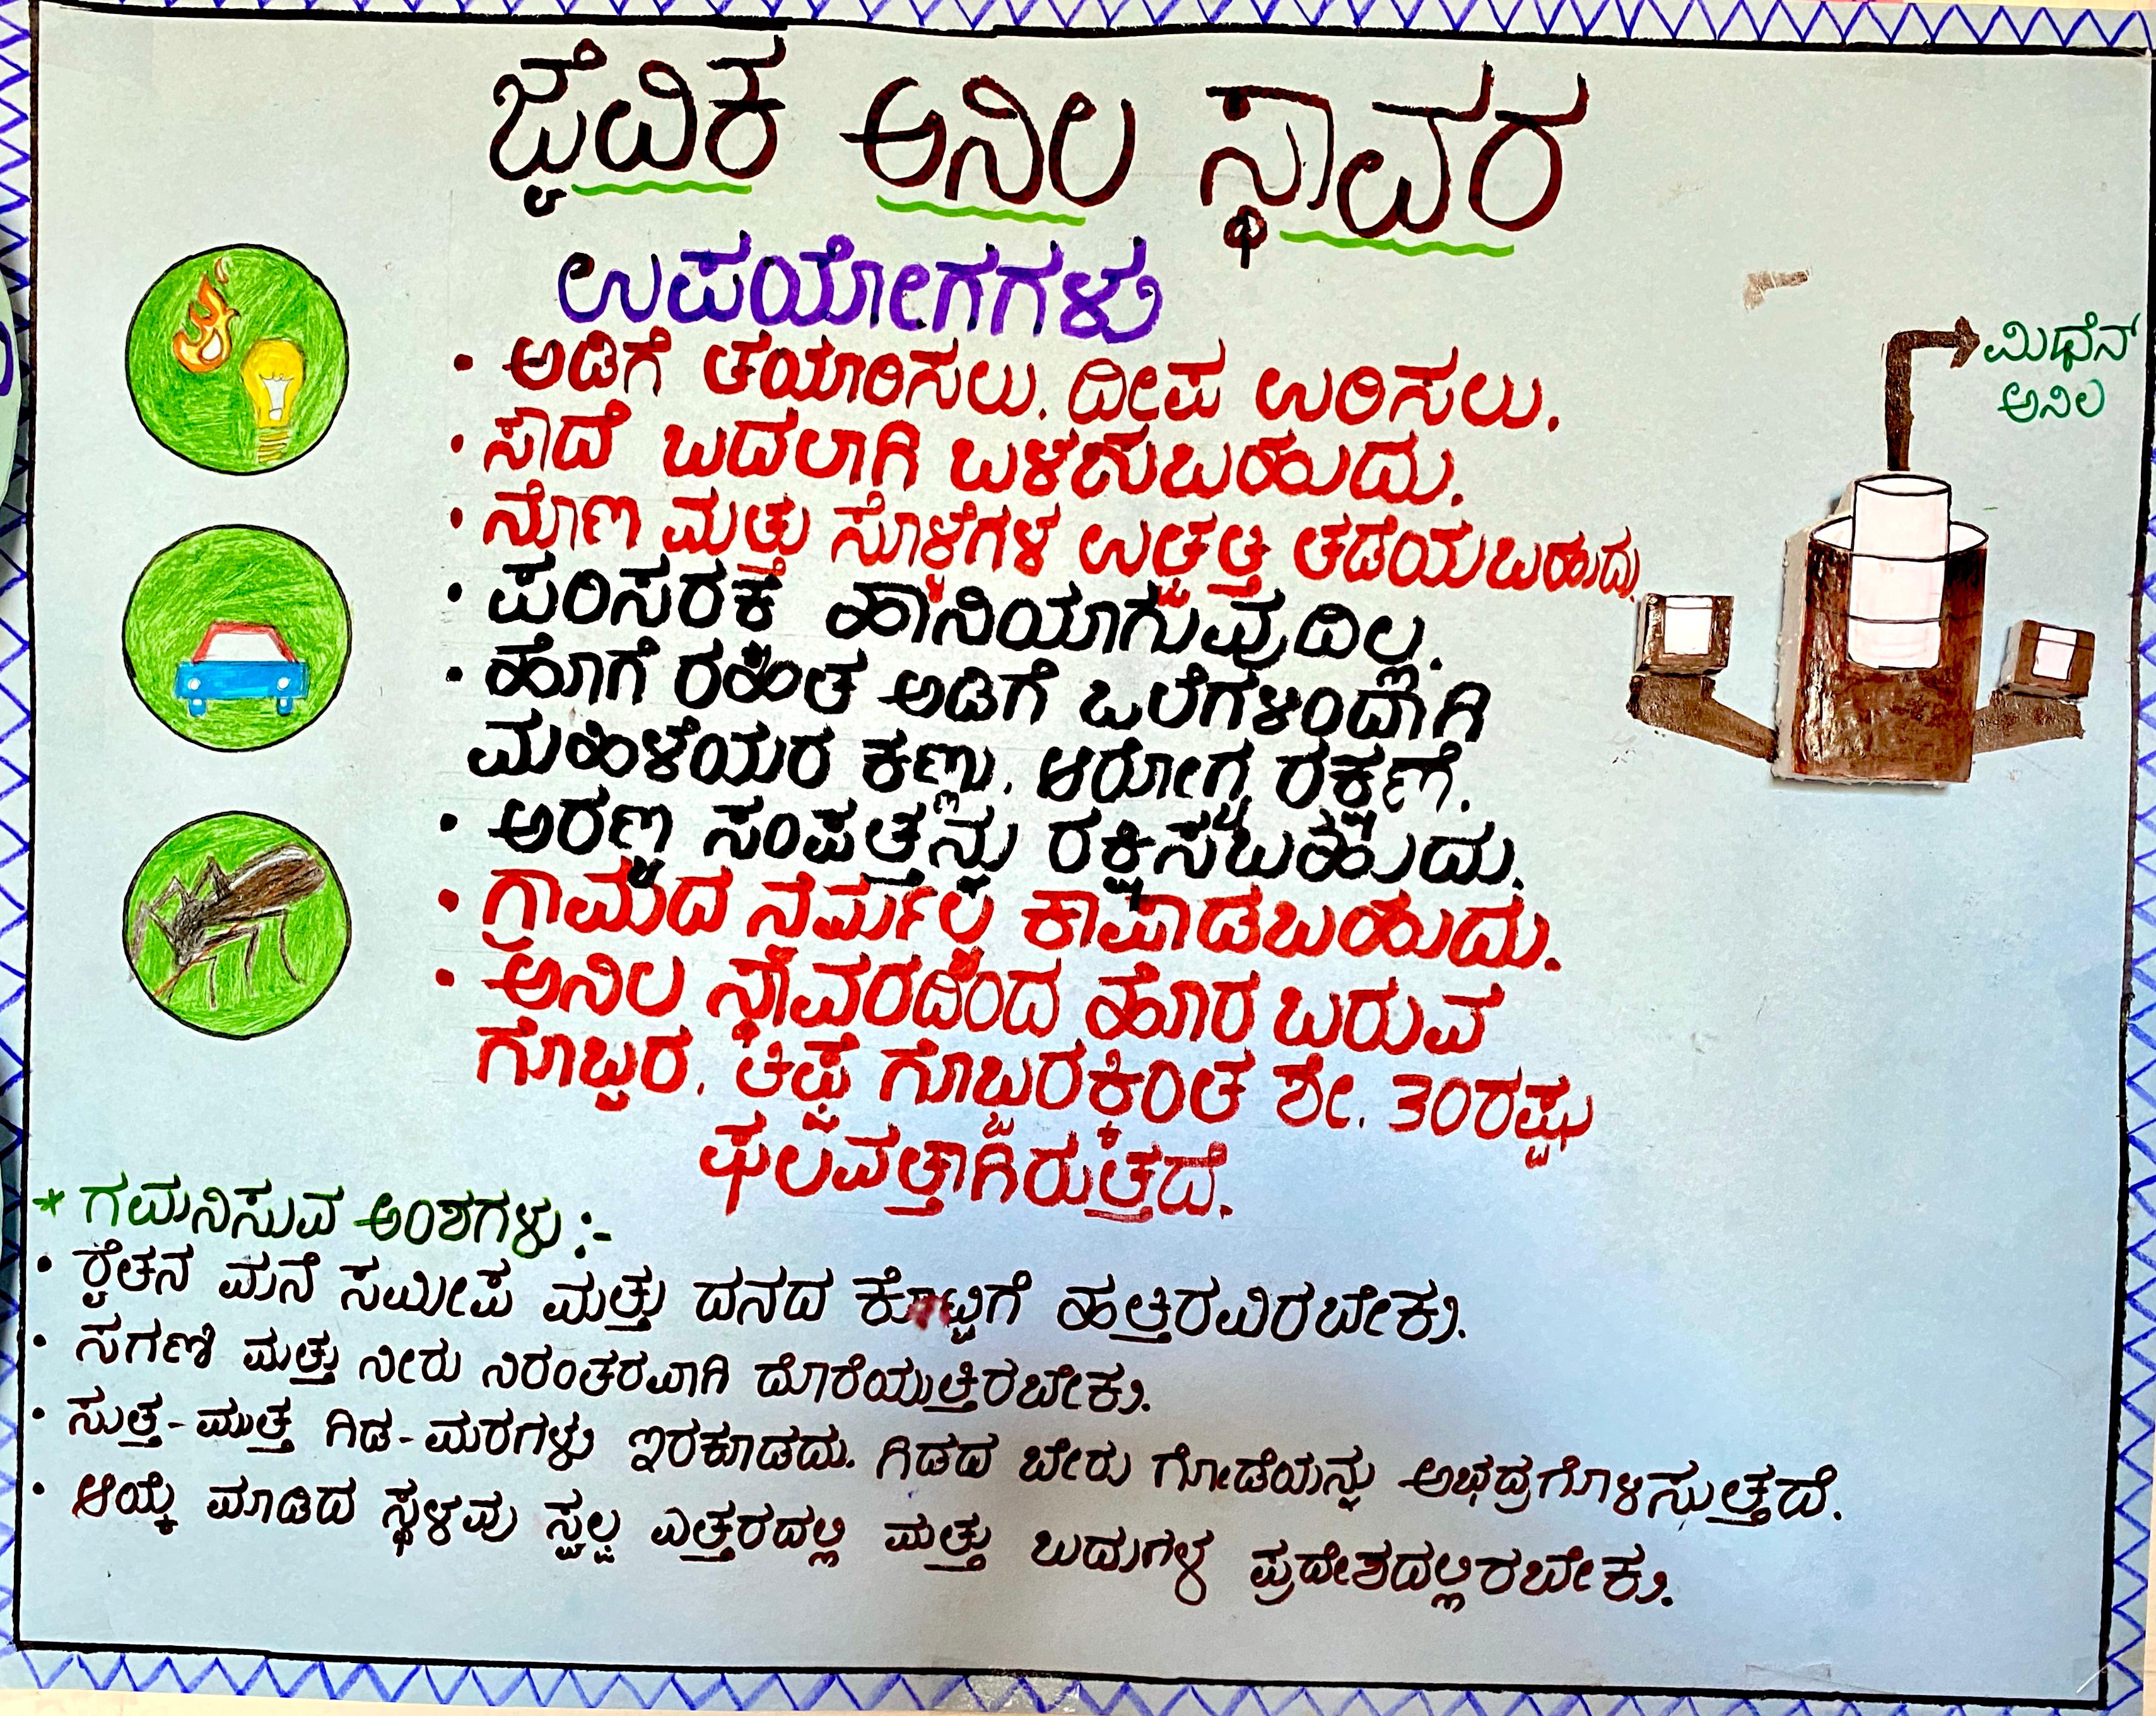 ಜೈವಿಕ ಅನಿಲ ಸ್ಥಾವರ
ಉಪಯೋಗಗಳು
• ಅಡಿಗೆ ತಯಾರಿಸಲು. ದೀಪ ಉರಿಸಲು.
• ಸೌದೆ ಬದಲಾಗಿ ಬಳಸುಬಹುದು.
• ನೊಣ ಮತ್ತು ಸೊಳ್ಳೆಗಳ ಉತ್ಪತ್ತಿ ತಡೆಯಬಹುದು.
• ಪರಿಸರಕೆ ಹಾನಿಯಾಗುವುದಿಲ್ಲ.
• ಹೊಗೆ ರಹಿತ ಅಡಿಗೆ ಒಲೆಗಳಿಂದಾಗಿ
ಮಹಿಳೆಯರ ಕಣ್ಣು, ಆರೋಗ್ಯ ರಕ್ಷಣೆ.
• ಅರಣ್ಯ ಸಂಪತ್ತನ್ನು ರಕ್ಷಿಸಬಹುದು.
• ಗ್ರಾಮದ ನೈರ್ಮಲ್ಯ ಕಾಪಾಡಬಹುದು.
• ಅನಿಲ ಸ್ಥಾವರದಿಂದ ಹೊರ ಬರುವ
ಗೊಬ್ಬರ, ತಿಪ್ಪೆ ಗೊಬ್ಬರಕ್ಕಿಂತ ಶೇ. 30ರಷ್ಟು
ಫಲವತ್ತಾಗಿರುತ್ತದೆ.
ಮಿಥೆನ್
ಅನಿಲ
* ಗಮನಿಸುವ ಅಂಶಗಳು :-
• ರೈತನ ಮನೆ ಸಮೀಪ ಮತ್ತು ದನದ ಕೊಟ್ಟಿಗೆ ಹತ್ತಿರವಿರಬೇಕು.
• ಸಗಣಿ ಮತ್ತು ನೀರು ನಿರಂತರವಾಗಿ ದೊರೆಯುತ್ತಿರಬೇಕು.
• ಸುತ್ತ-ಮುತ್ತ ಗಿಡ-ಮರಗಳು ಇರಕೂಡದು. ಗಿಡದ ಬೇರು ಗೋಡೆಯನ್ನು ಅಭದ್ರಗೊಳಿಸುತ್ತದೆ.
• ಆಯ್ಕೆ ಮಾಡಿದ ಸ್ಥಳವು ಸ್ವಲ್ಪ ಎತ್ತರದಲ್ಲಿ ಮತ್ತು ಬದುಗಳ ಪ್ರದೇಶದಲ್ಲಿರಬೇಕು.